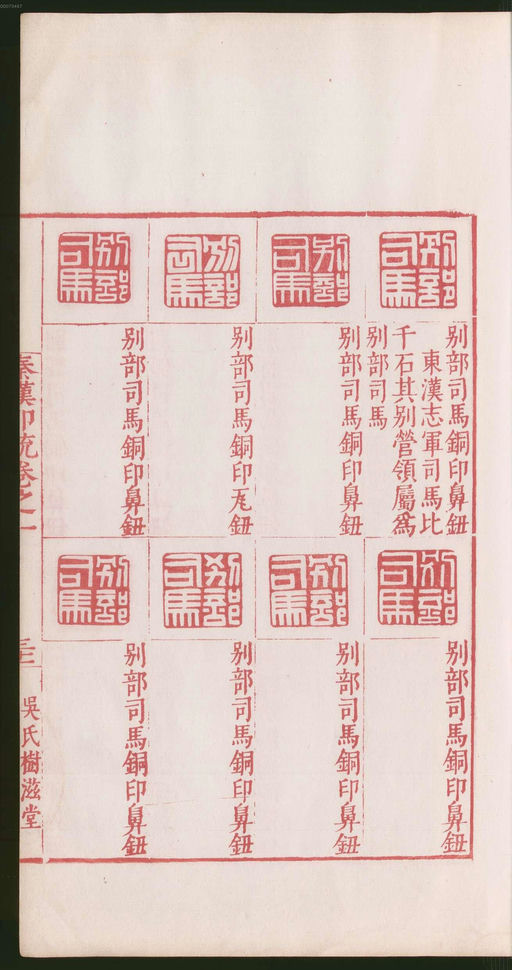 00073447
別部司馬
別部司馬銅印鼻鈕
東漢志軍司馬比
千石其別營領屬為
別部司馬
別部司馬
別部司馬銅印鼻鈕
別部司馬
別部司馬銅印瓦鈕
別部司馬
別部司馬銅印鼻鈕
別部司馬
別部司馬銅印鼻鈕
別部司馬
別部司馬銅印鼻鈕
別部司馬
別部司馬銅印鼻鈕
別部司馬
別部司馬銅印鼻鈕
秦漢印統卷之一
吳氏樹滋堂